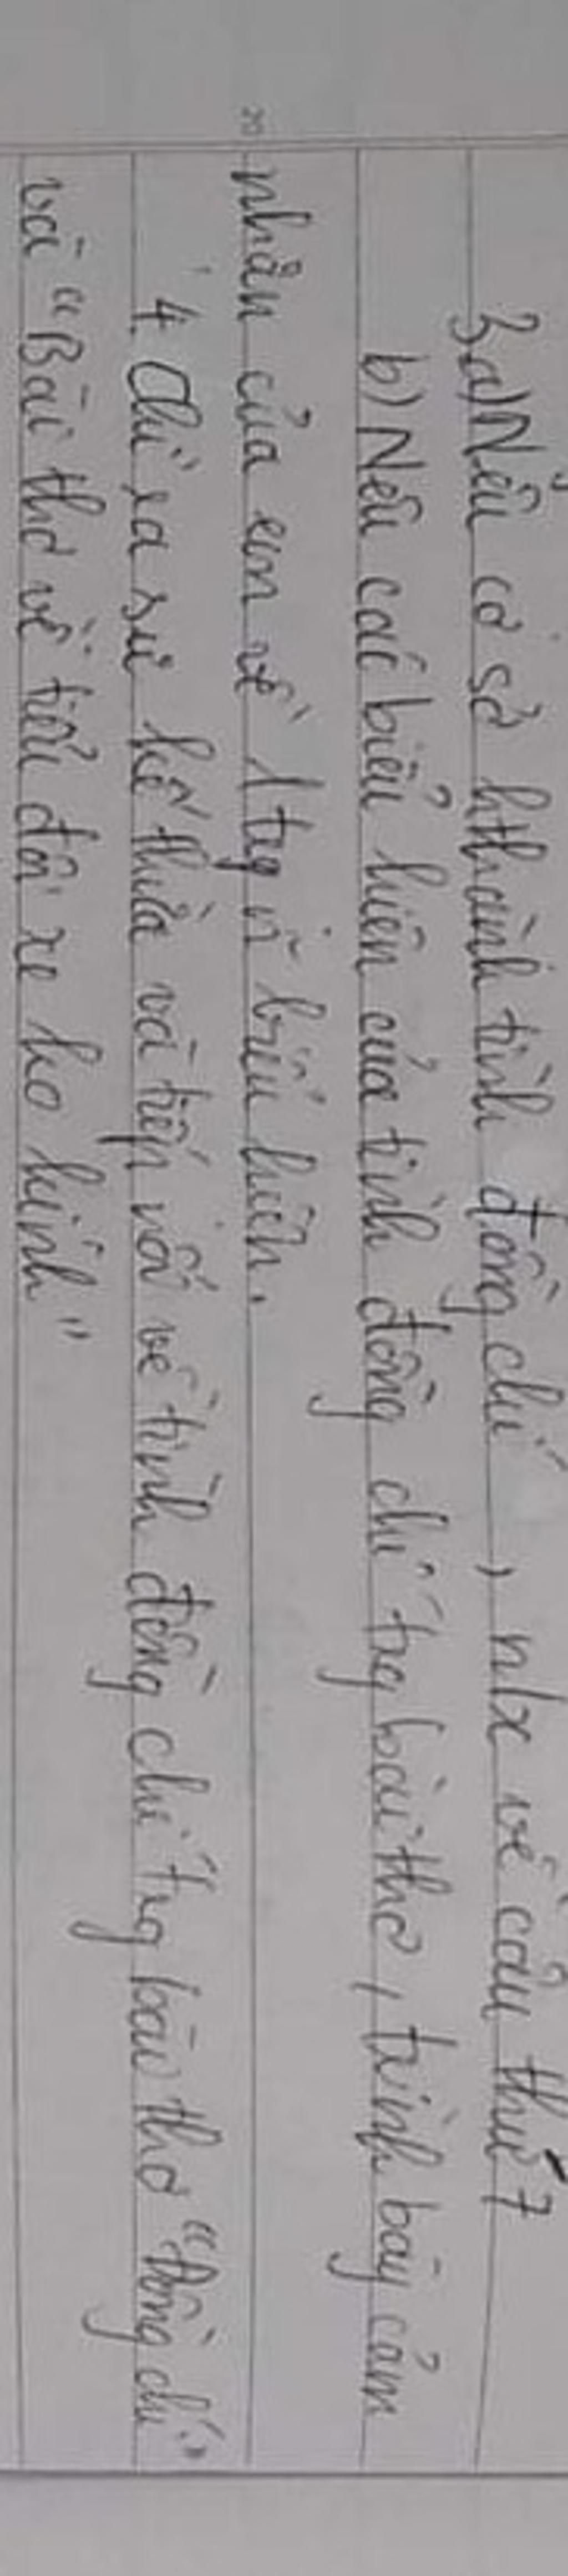 3.a) Nêu cơ sở hthành tình đồng chí, nhx về câu thứ 7
b) Nêu các biểu hiện của tình đồng chí trg bài thơ, trình bày cảm
20
nhận của em về 1 trg ~ biểu hiện.
4. Chỉ ra sự kế thừa và tiếp nối về tình đồng chí trg bài thơ "Đồng chí"
và "Bài thơ về tiểu đội xe ko kính"